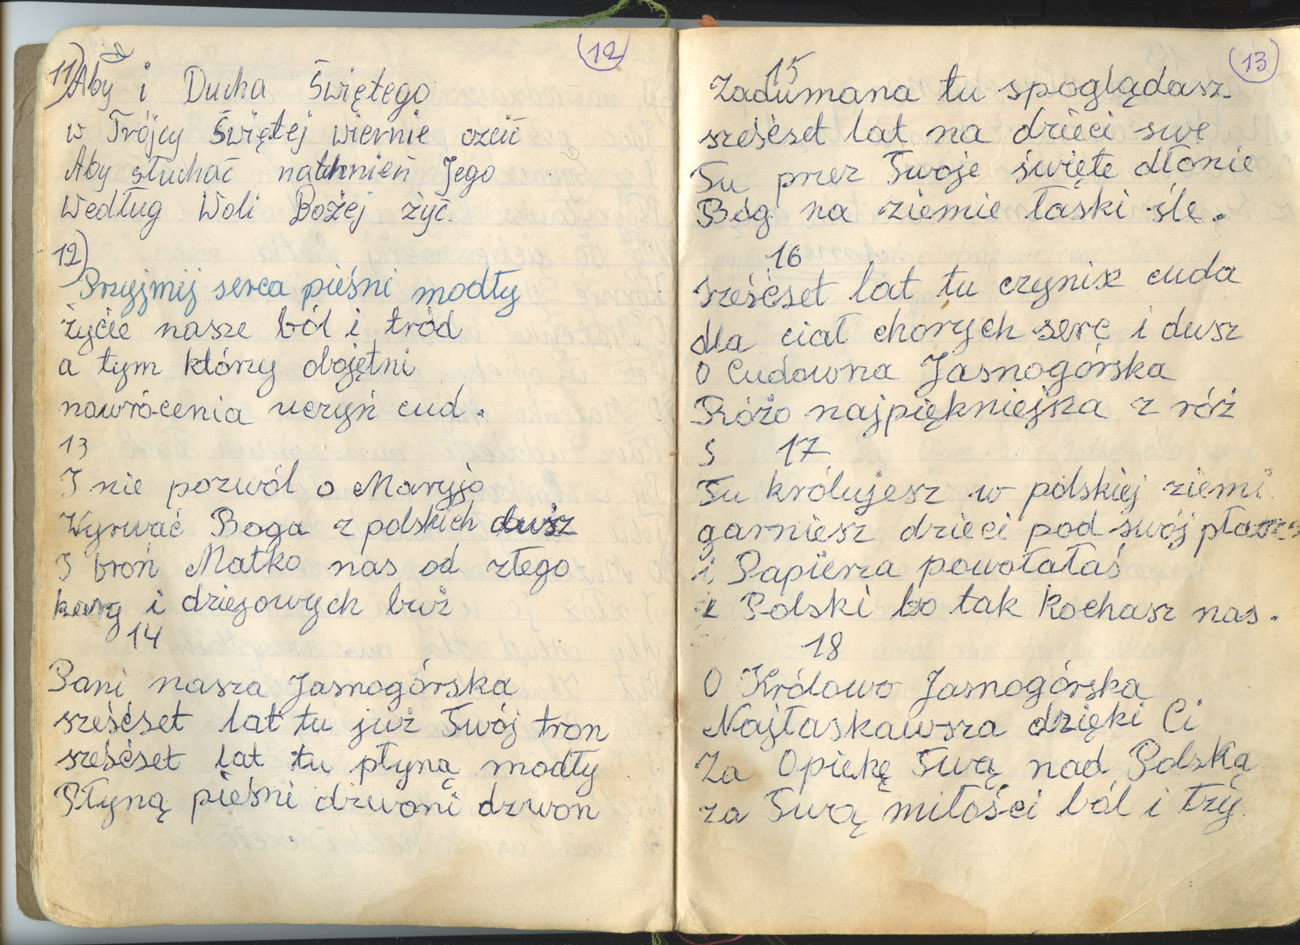 (12)
11)
Aby i Ducha Świętego
w Trójcy Świętej wiernie czcić
Aby słuchać natchnień Jego
Według Woli Bożej żyć
12)
Przyjmij serca pieśni modły
życie nasze ból i tród
a tym którzy obojętni
nawrócenia uczyń cud.
13
I nie pozwól o Maryjo
Wyrwać Boga z polskich dusz
I broń Matko nas od złego
i dziejowych burz
14
Pani nasza Jasnogórska
sześćset lat tu już Twój tron
sześćset lat tu płyną modły
Płyną pieśni dzwoni dzwon
(13)
15
Zadumana tu spoglądasz
sześćset lat na dzieci swe
Tu przez Twoje święte dłonie
Bóg na ziemie łaski śle.
16
sześćset lat tu czynisz cuda
dla ciał chorych serc i dusz
O Cudowna Jasnogórska
Różo najpiękniejsza z róż
S 17
Tu królujesz w polskiej ziemi
garniesz dzieci pod swój płaszcz
i Papieża powołałaś
z Polski bo tak Kochasz nas.
18
O Królowo Jasnogórska
Najłaskawsza dzięki Ci
Za Opiekę Twą nad Polską
za Twą miłości ból i łzy